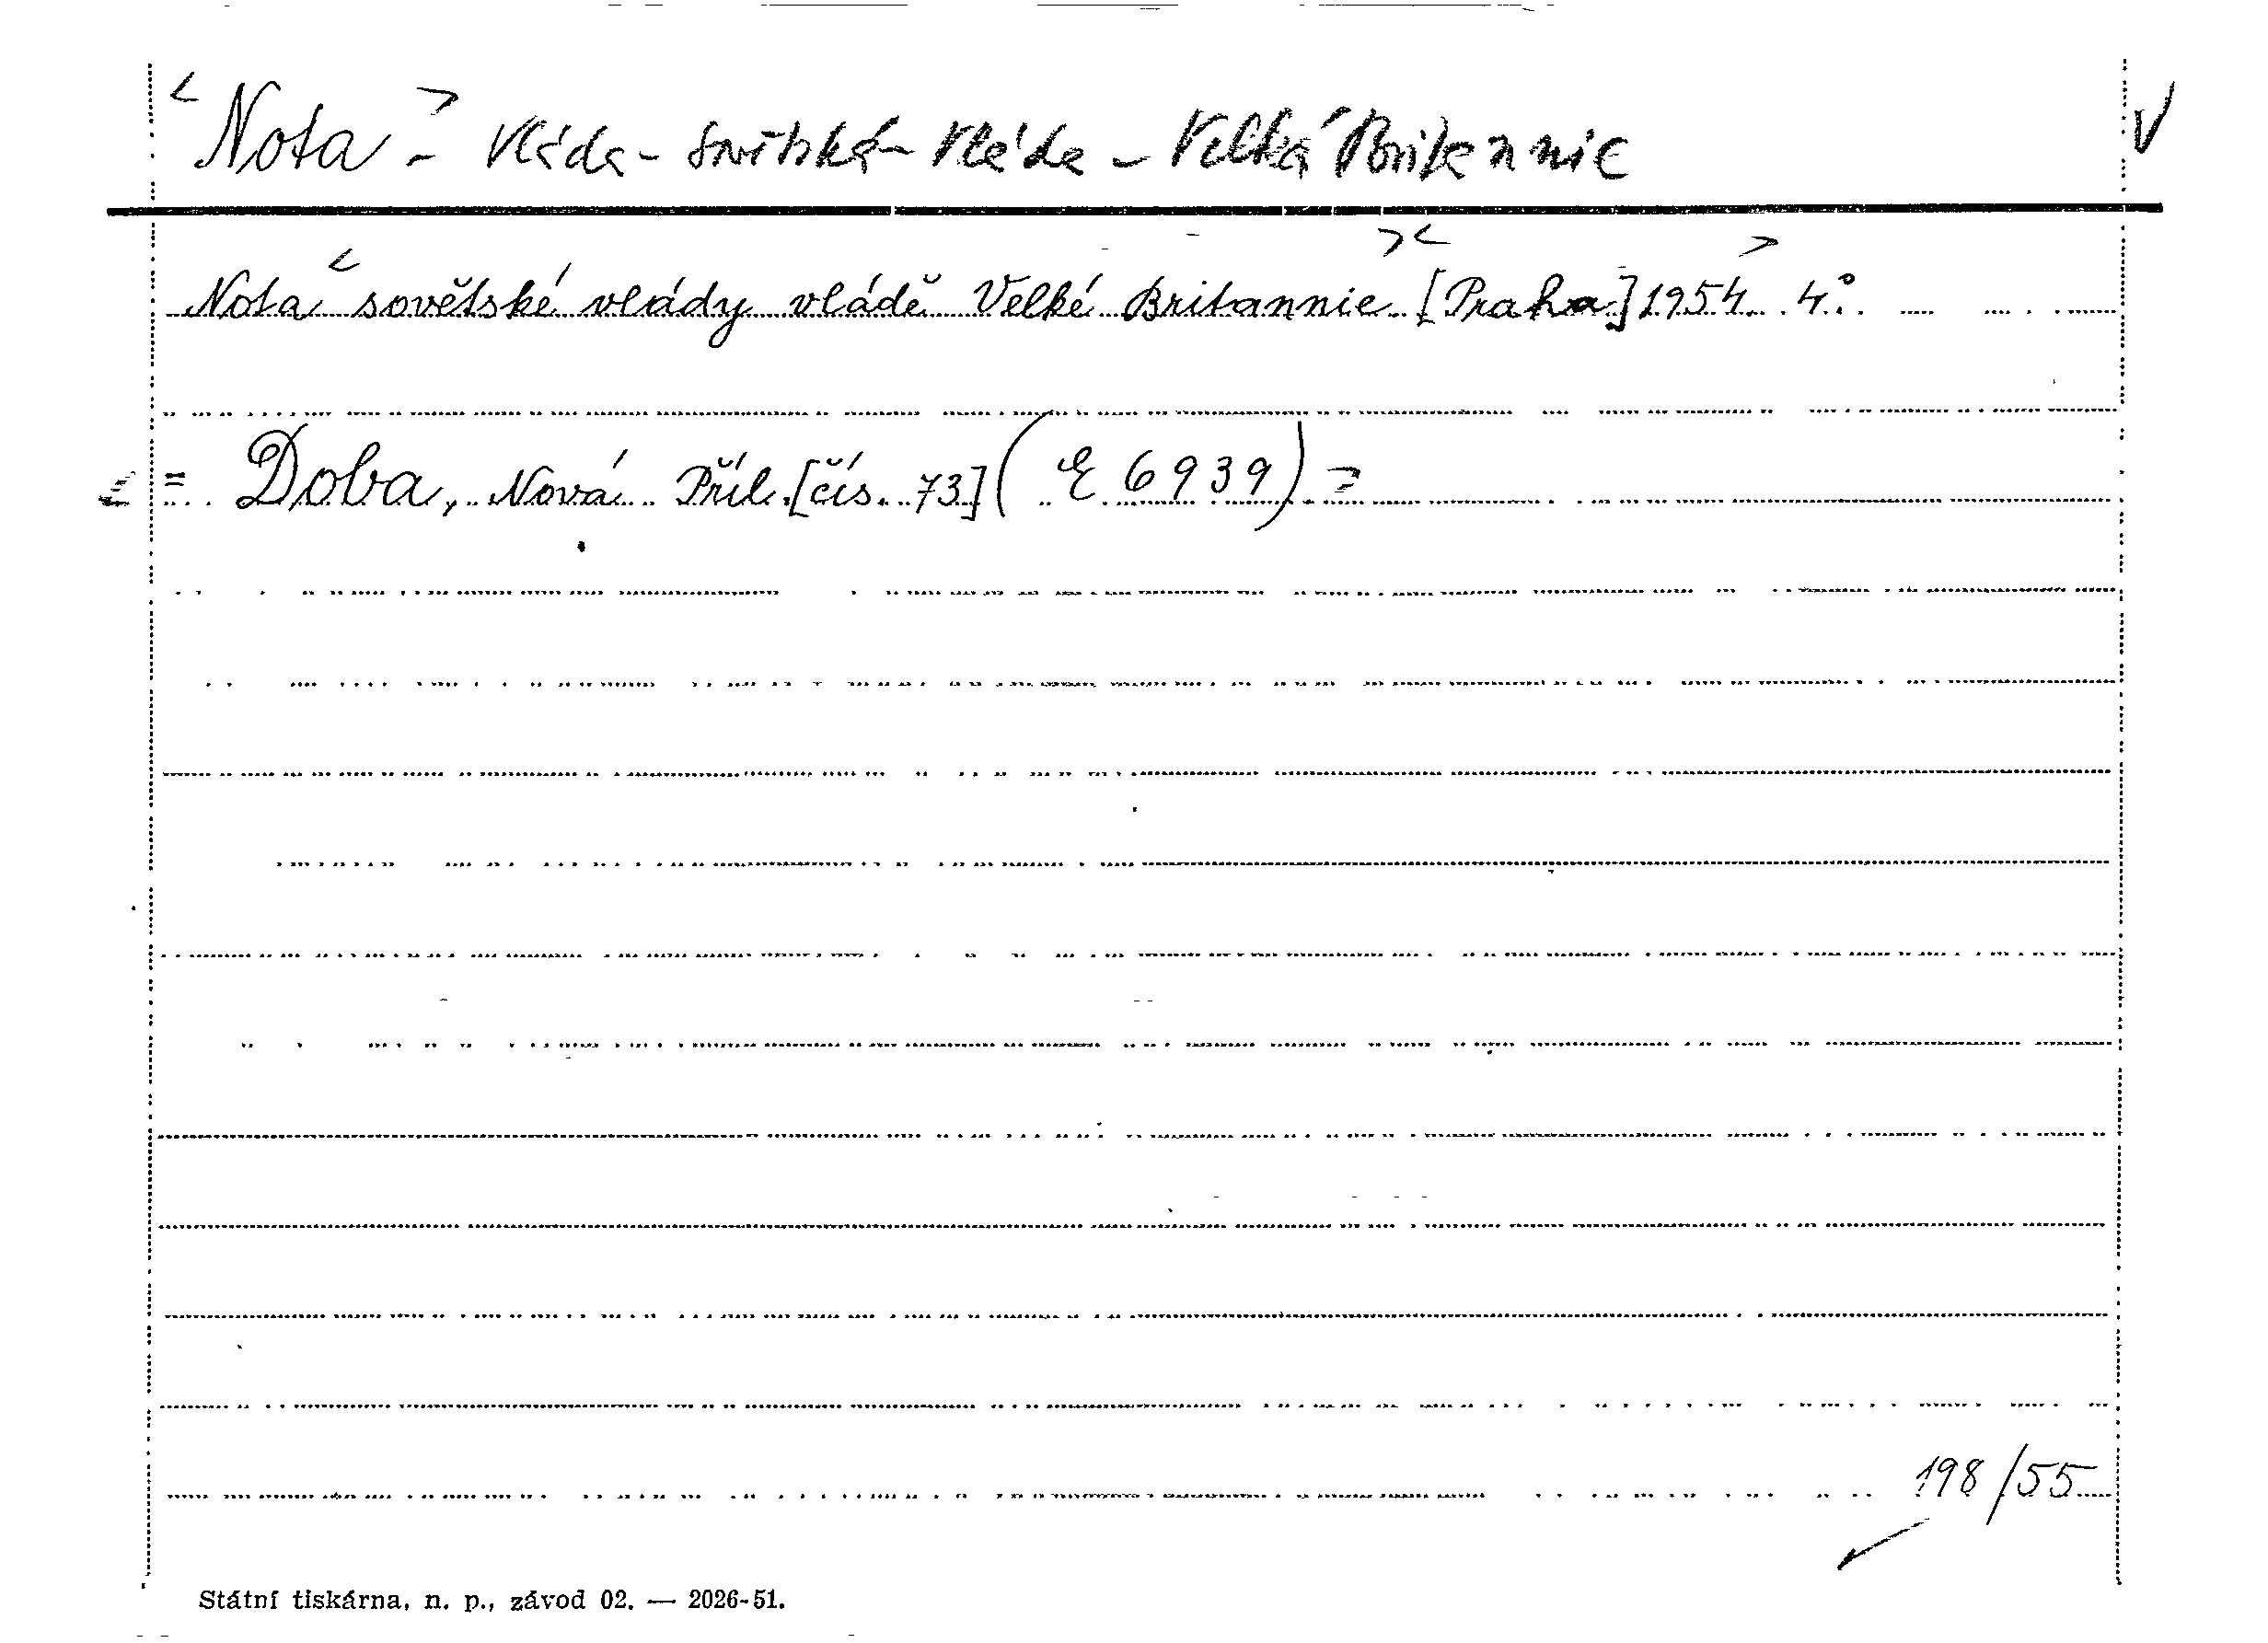 <Nota> - Vláda - sovětská - Vláda - Velká Britannie V
Nota <sovětské vlády vládě Velké Britannie >< [Praha] 1954. > 4°.
= Doba, Nová Příl. [čís. 73] (E 6939) =
198/55
Státní tiskárna, n. p., závod 02. — 2026-51.